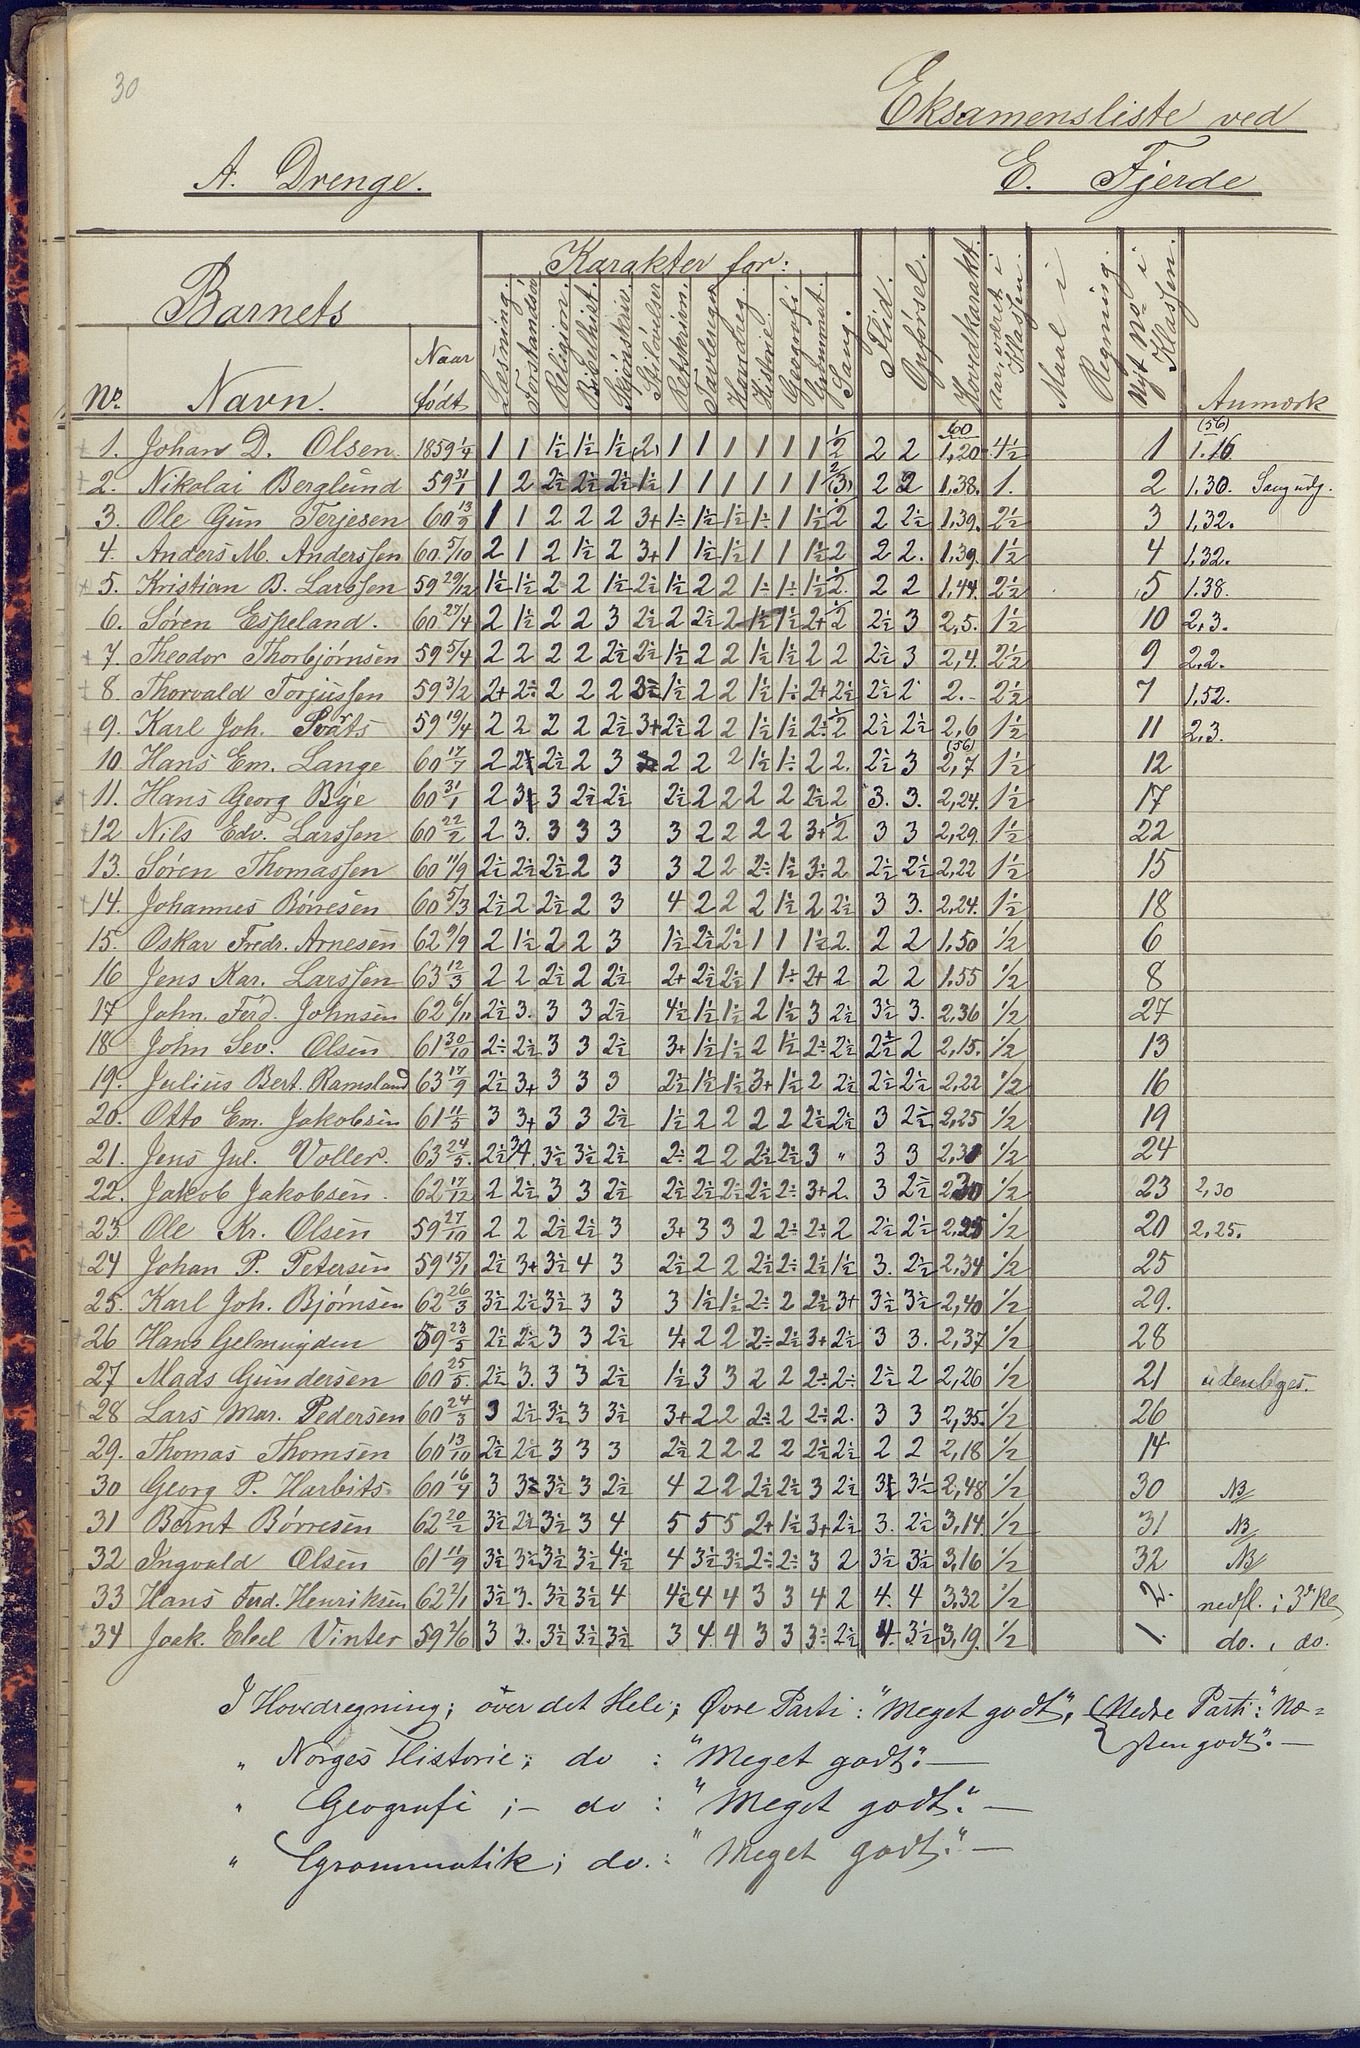 30
Eksamensliste ved
A. Drenge.
E. Fjerde
Barnets
Karakter for:
Nr. Navn. Naar født Læsning. Forstandsø. Religion. Bibelhist. Skjønskriv. Stiløvelser Retskrivn. Tavleregn. Hovedreg. Historie Geografi Grammat. Sang. Flid. Opførsel. Hovedkarakt. aar været i Klassen. Maal i Regning. Nyt No i Klassen. Anmærk
1. Johan D. Olsen 1859 1/4 1 1 1½ 1½ 1½ (2) 1 1 1 1 1 1 ½ 2 2 60 1,20 4½ 1 (56) 1.16
2. Nikolai Berglund 59 31/1 1 2 2½ 2½ 2½ 1½ 1 1 1 1 1 1 2(3) 2 2 1,38. 1. 2 1.30. Sang udg.
3. Ole Gun Terjesen 60 13/9 1 1 2 2 2 3+ 1÷ 1½ 1½ 1÷ 1 1½ 2 2 2½ 1,39. 2½ 3 1,32.
4. Anders M. Anderssen 60 5/10 2 1 2 1½ 2 3+ 1 1½ 1½ 1 1 1½ 2 2 2. 1,39. 1½ 4 1,32.
5. Kristian B. Larssen 59 29/12 1½ 1½ 2 2 1½ 2½ 1½ 2 2 1÷ 1÷ 1½ 2. 2 2 1,44. 2½ 5 1.38.
6. Søren Espeland. 60 27/4 2 1½ 2 2 3 2½ 2 2½ 2 1½ 1½ 2+ 2 2½ 3 2,5. 1½ 10 2,3.
7. Theodor Thorbjørnsen 59 5/4 2 2 2 2 2½ 2½ 1½ 2 2 1½ 1½ 2 2 2½ 3 2,4. 2½ 9 2,2.
8 Thorvald Torjussen 59 3/2 2+ 2÷ 2 2 2 3½ 1½ 2 2 1½ 1÷ 2+ 2½ 2½ 2 2. 2½ 7 1,52.
9. Karl Joh. Svarts 59 19/4 2 2 2 2 2½ 3+ 2½ 2 2 1½ 1½ 2÷ 2 2½ 2½ 2,6 1½ 11 2,3.
10. Hans Em. Lange 60 17/7 2 2 2½ 2 3 2 2 2 1½ 1÷ 2 2. 2½ 3 (56) 2,7 1½ 12
11. Hans Georg Bye 60 31/1 2 3 3 2½ 2½ 2½ 2 2 2 2 2½ 2 3. 3. 2,24. 1½ 17
12 Nils Edv. Larssen 60 22/2 2 3. 3 3 3 3 2 2 2 2 3+ 2 3 3 2,29. 1½ 22
13. Søren Thomassen 60 11/9 2½ 2½ 2½ 2 3 3 2 2 2÷ 1½ 3÷ 2 2½ 2½ 2,22 1½ 15
14. Johannes Børresen 60 5/3 2½ 2 2½ 2 3 4 2 2 2 1½ 2 2½ 3 3. 2,24. 1½ 18
15. Oskar Fredr. Arnesen 62 9/9 2 1½ 2 2 3 1½ 2½ 2½ 1 1 1½ 2. 2 2 1,50 ½ 6
16 Jens Kar. Larssen 63 12/3 2 2 2½ 2 2½ 2+ 2½ 2½ 1 1÷ 2+ 2 2 2 1.55 ½ 8
17 John. Ferd. Johnsen 62 6/11 2½ 3. 3 3 2½ 4½ 1½ 1½ 2 1½ 3 2½ 3½ 3. 2,36 ½ 27
18 John Sev. Olsen 61 30/10 2÷ 2½ 3 3 2½ 3+ 1½ 1½ 2 1½ 2÷ 2½ 2½ 2 2,15. ½ 13
19. Julius Bert. Ramsland 63 17/9 2½ 3+ 3 3 3 2½ 1½ 1½ 3+ 1½ 2 2½ 2½ 2½ 2,22 ½ 16
20. Otto Em. Jakobsen 61 11/5 3 3+ 3 3 2½ 1½ 2 2 2 2 2½ 2½ 3 2½ 2,25 ½ 19
21. Jens Jul. Voller. 63 24/5. 2½ 3½ 3½ 2½ 2÷ 2 2 2½ 2½ 3 " 3 3 2,31 ½ 24
22. Jakob Jakobsen. 62 17/12 2 2½ 3 3 2½ 2½ 2½ 2½ 2½ 2÷ 3+ 2. 3 2½ 2,30 ½ 23 2,30
23 Ole Kr. Olsen 59 27/10 2 2 2½ 2½ 3 3+ 3 3 2 2÷ 2÷ 2 2½ 2½ 2,25 ½ 20 2,25.
24 Johan P. Petersen 59 15/1 2½ 3+ 3½ 4 3 2½ 2 2 2½ 2÷ 2½ 1½ 3. 2½ 2,34 ½ 25
25. Karl Joh. Bjørnsen 62 26/3 3½ 2½ 3½ 3 3 3 1½ 1½ 2÷ 2 2½ 3+ 3½ 3½ 2,40 ½ 29.
26 Hans Gelmuyden 59 23/5 2½ 2½ 3 3 2½ 4+ 2 2 2÷ 2½ 3+ 2½ 3 3. 2,37 ½ 28
27 Mads Gundersen 60 25/5. 2½ 3. 3 3 2½ 1½ 3 3 2 2 2÷ 2÷ 2½ 2 2,26 ½ 21 udenbyes.
28 Lars Mar. Pedersen 60 24/3 3 2½ 3½ 3 3½ 3+ 2 2 2÷ 2 2÷ 2. 3 3 2,35. ½ 26
29. Thomas Thomsen 60 13/10 2½ 2½ 3 3 3 2½ 2 2 2 2 2½ 2½ 2 2 2,18 ½ 14
30 Georg P. Harbits 60 16/4 3 3 3½ 3 2½ 4 2 2 2½ 2½ 3 2½ 3 3½ 2,48 ½ 30 NB
31 Bernt Børresen 62 20/2 3½ 2½ 3½ 3 4 5 5 5 2+ 1½ 3+ 2½ 3. 2½ 3,14. ½ 31 NB
32 Ingvald Olsen 61 11/9 3½ 3½ 3½ 3½ 4½ 4 3½ 3½ 2÷ 2÷ 3 2 3½ 3½ 3,16 ½ 32 NB
33 Hans Ferd. Henriksen 62 2/1 3½ 3. 3½ 3½ 4 4½ 4 4 3 3 4 2 4. 4 3,32 ½ 2. nedfl. i 3die Kl
34 Joak. Elsel Vinter 59 2/6 3 3. 3½ 3½ 3½ 3 4 4 3 3 3÷ 2½ 4. 3½ 3,19. ½ 1. do. i do.
I Hovedregning; over det Hele; Øvre Parti: "Meget godt", Nedre Parti: "Næ=
sten godt". —
" Norges Historie; do : "Meget godt". —
" Geografi ;— do : "Meget godt". —
" Grammatik; do. : "Meget godt". —